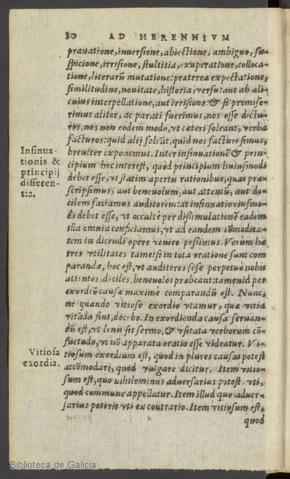 80 AD HERENNIVM
prauatione, inuersione, abiectione, ambiguo, su-
spicione, irrisione, stultitia, exuperatione, colloca-
tione, literarũ mutatione: præterea expectatione,
similitudine, nouitate, historia, versu: aut ab ali-
cuius interpellatione, aut irrisione: & si promise-
rimus aliter, ac parati fuerimus, nos esse dictu-
ros, nos non eodem modo, vt cæteri soleant, verba
facturos: quid alij soleãt, quid nos facturi simus,
breuiter exponemus. Inter insinuationẽ & prin-
cipium hoc interest, quòd principium huiusmodi
debet esse, vt statim apertis rationibus, quas præ-
scripsimus, aut beneuolum, aut attentũ, aut do-
cilem faciamus auditorem: at insinuatio eiusmo-
di debet esse, vt occultè per dissimulationẽ eadem
illa omnia conficiamus, vt ad eandem cõmodita-
tem in dicendi opere venire possimus. Verum hæ
tres vtilitates tametsi in tota oratione sunt com
parandæ, hoc est, vt auditores sese perpetuò nobis
attẽtos, dociles, beneuolos præbeant: tamen id per
exordiũ causæ maximè comparandũ est. Nunc,
ne quando vitioso exordio vtamur, quæ vitia
vitãda sint, docebo. In exordienda causa seruan-
dũ est, vt lenis sit sermo, & vsitata verborum cõ-
suetudo, vt nõ apparata oratio esse videatur. Vi-
tiosum exordium est, quod in plures causas potest
accõmodari, quod vulgare dicitur. Item vitio-
sum est, quo nihilominus aduersarius potest vti,
quod commune appellatur. Item illud quo aduer-
sarius poterit vti ex contrario. Item vitiosum est,
quod
Insinua-
tionis &
principij
differen-
tia.
Vitiosa
exordia.
Biblioteca de Galicia